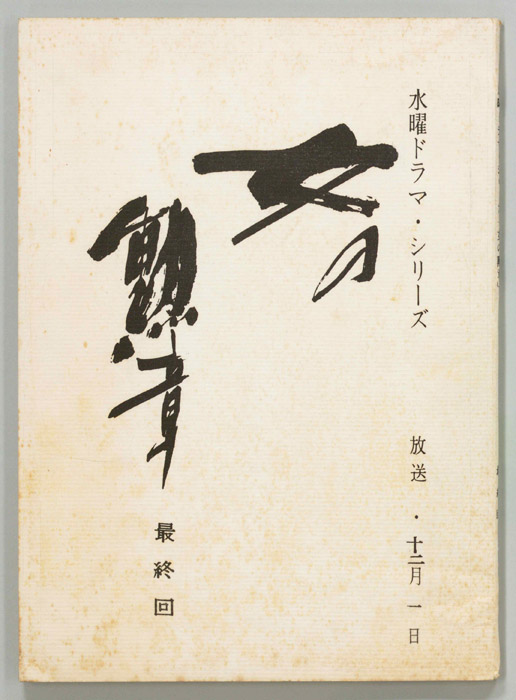 水曜ドラマ・シリーズ
放送・十二月一日
女の
勲章
最終回